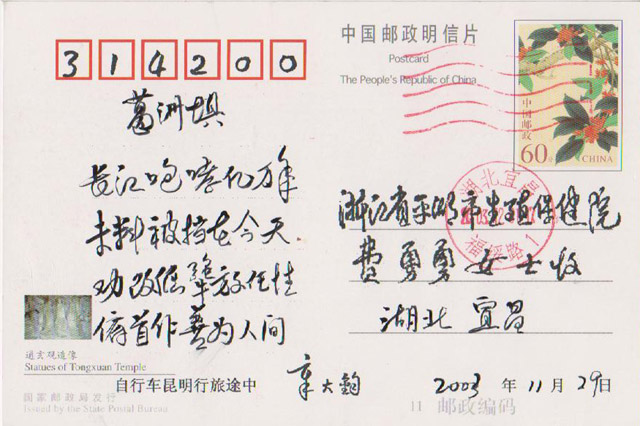 314200
中国邮政明信片
Postcard
The People's Republic of China
中国邮政
60分
CHINA
湖北宜昌
福绥路1
葛洲坝
长江咆哮亿万年
未料被挡在今天
劝改低
放任性
俯首作善为人间
浙江省平湖市生殖保健院
费勇勇女士收
湖北宜昌
通玄观造像
Statues of Tongxuan Temple
自行车昆明行旅途中
章大钧
2003年11月29日
国家邮政局发行
Issued by the State Postal Bureau
11 邮政编码